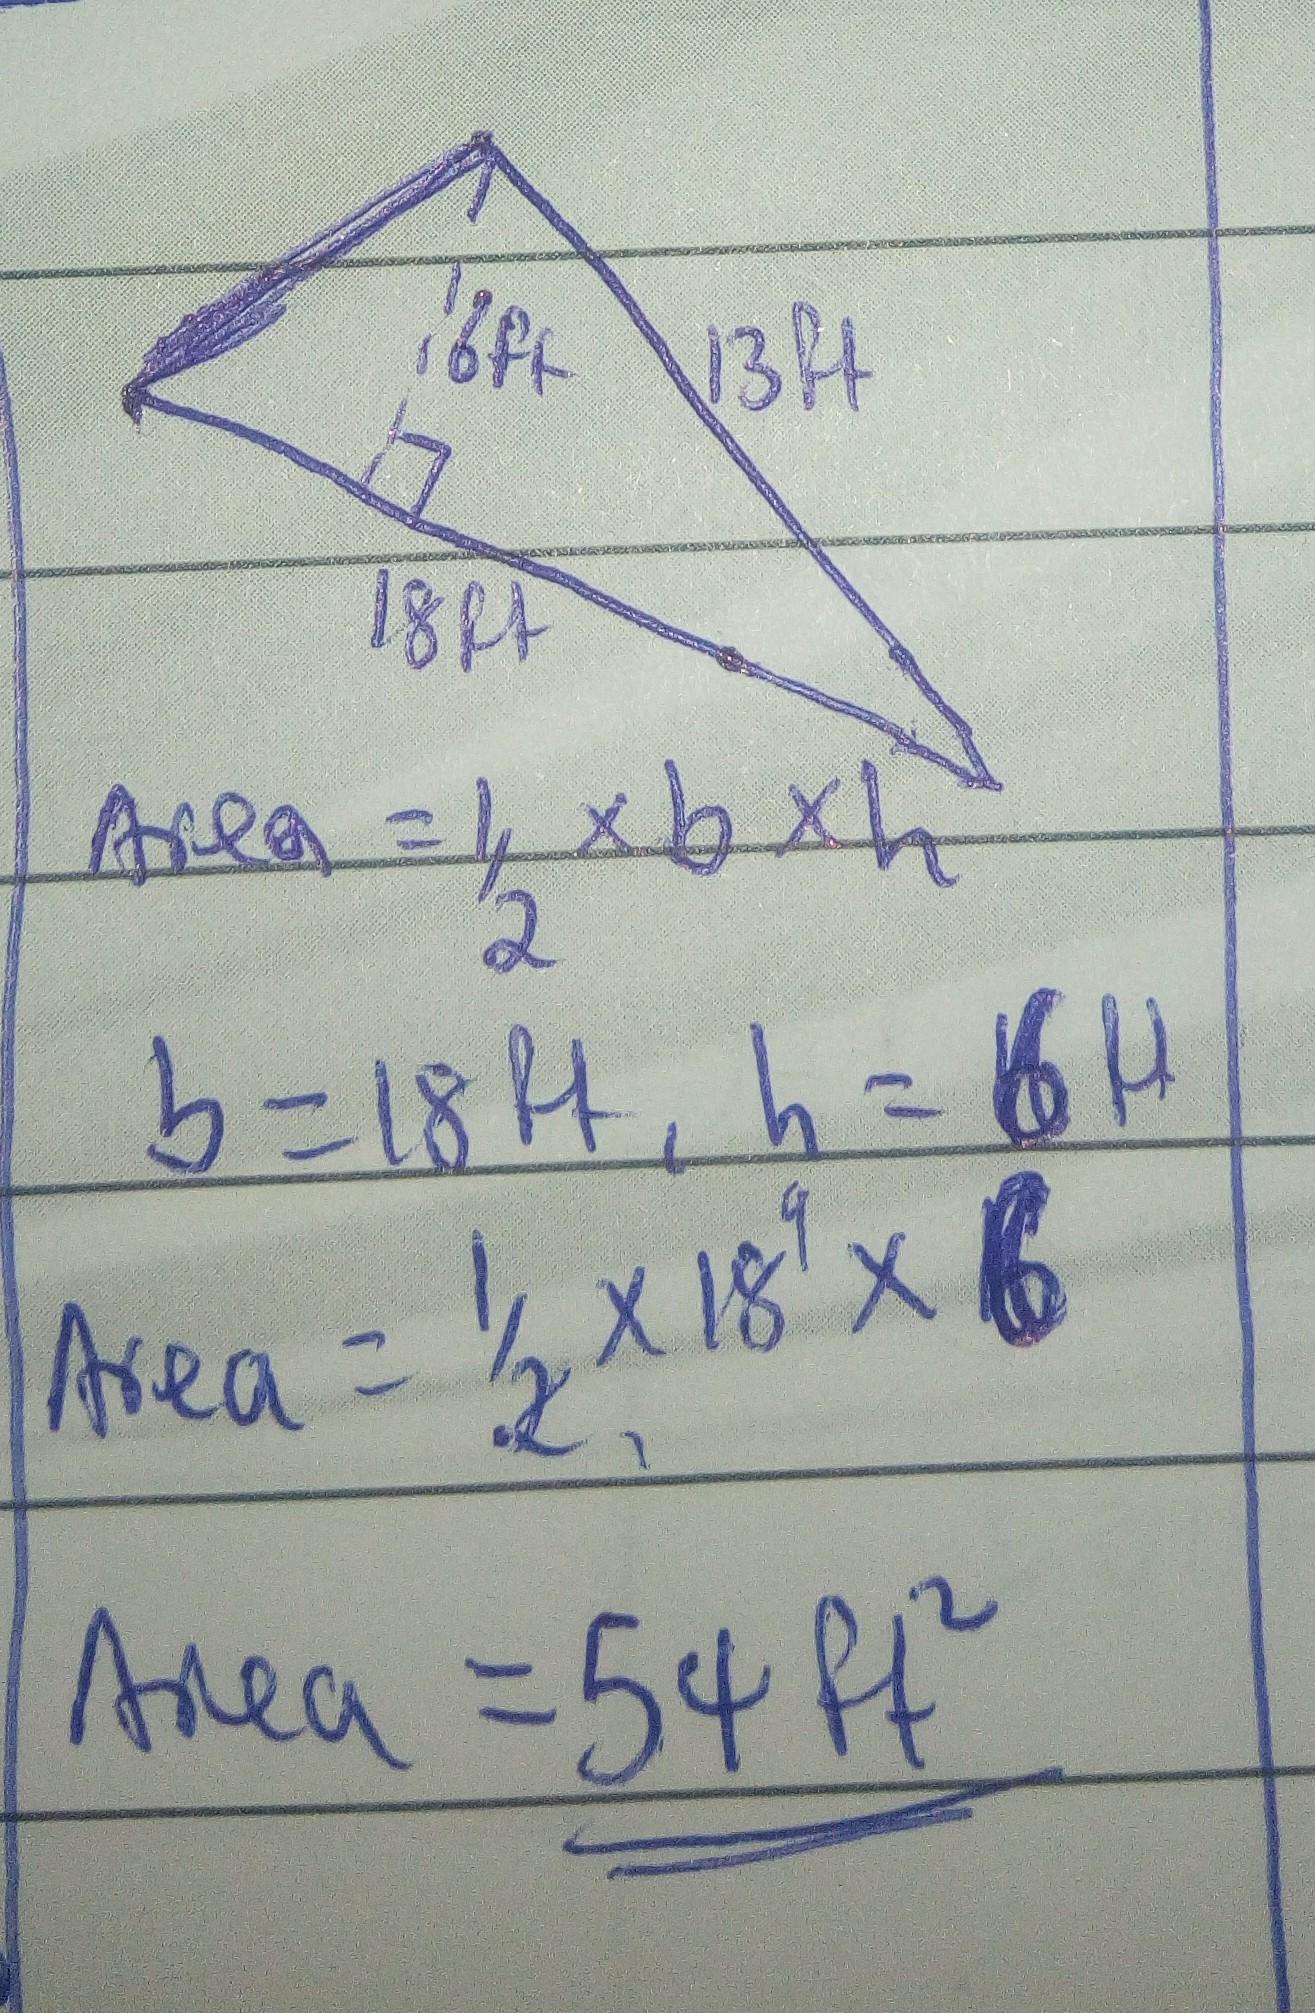 6ft
13ft
18ft
Area = 1/2 × b × h
b = 18ft, h = 6ft
Area = 1/2 × 18 9 × 6
1
Area = 54 ft²